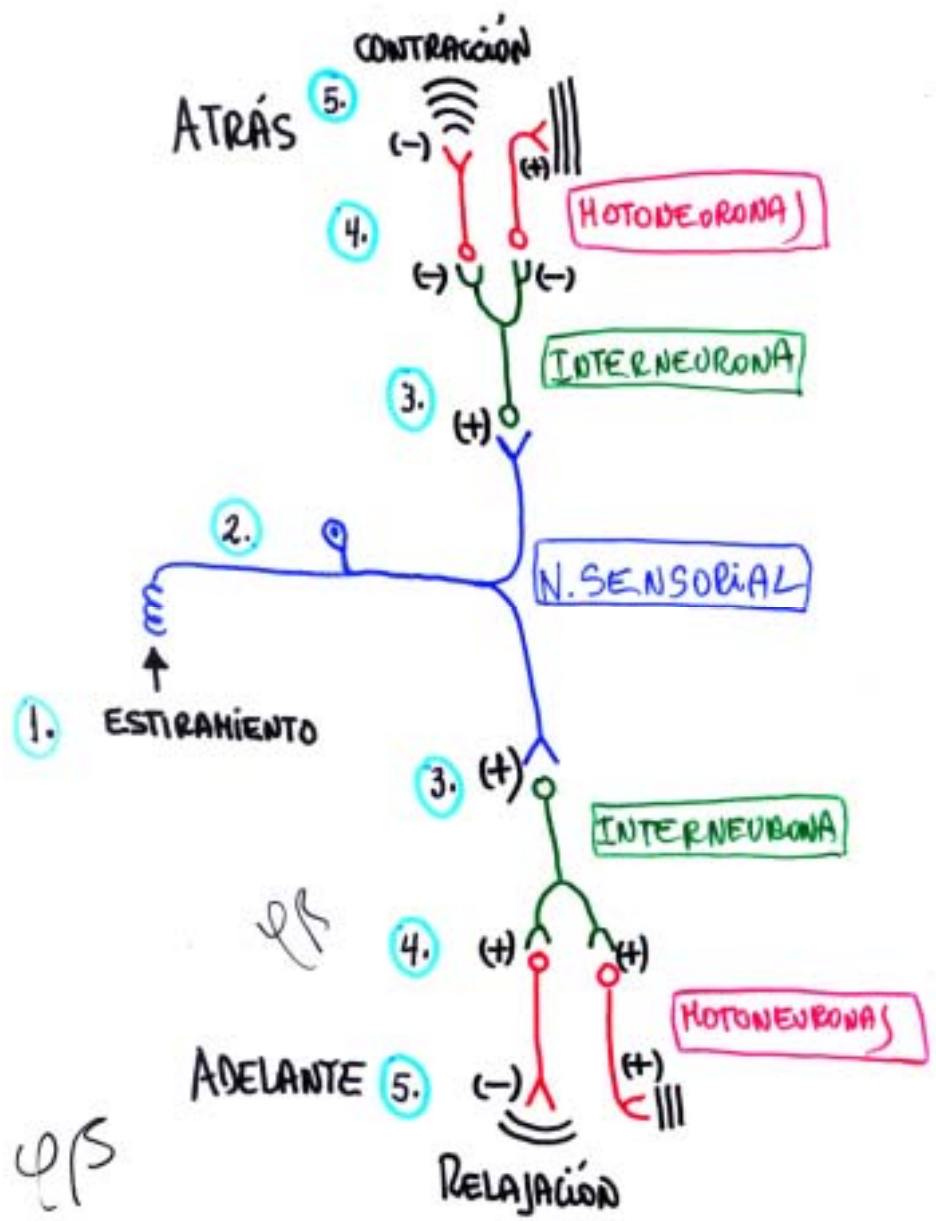 CONTRACCIÓN
5.
ATRÁS
(-)
(+)
MOTONEURONAS
4.
(-)
(-)
INTERNEURONA
3.
(+)
2.
N.SENSORIAL
1.
ESTIRAMIENTO
3.
(+)
INTERNEURONA
φβ
4.
(+)
(+)
MOTONEURONAS
(+)
ADELANTE
5.
(-)
φβ
RELAJACIÓN